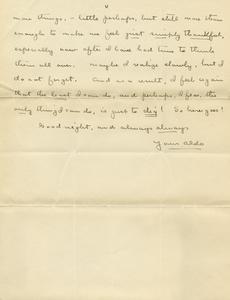 more things, - little perhaps, but still more than
enough to make me feel just simply thankful,
especially now after I have had time to think
them all over. Maybe I realize slowly, but I
do not forget. And as a result, I feel again
that the least I can do, and perhaps, I fear, the
only thing I can do, is just to dig! So here goes!
Good night, and always always
Your Aldo